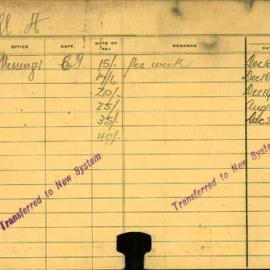 ll H
OFFICE DEPT. RATE OF PAY REMARKS
Messengr E.T. 15/- per week Dec 1
Dec 16
20/- Dec 1
25/- Aug
35/- Dec 2
40/-
Transferred to New System
Transferred to New System